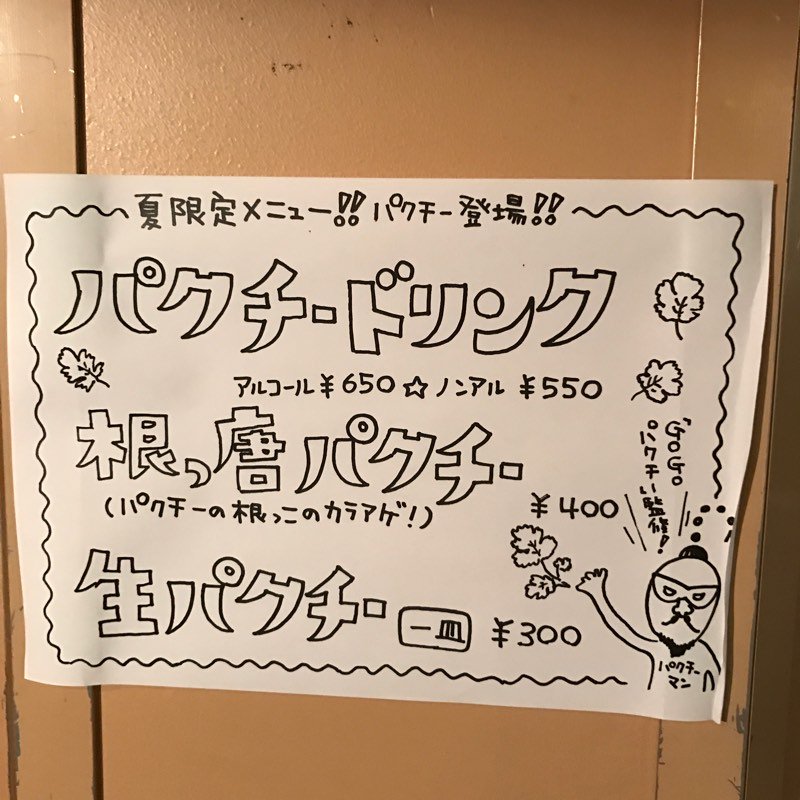 夏限定メニュー!! パクチー登場!!
パクチードリンク
アルコール¥650☆ノンアル ¥550
根っ唐パクチー
(パクチーの根っこのカラアゲ!)
¥400
生パクチー 一皿 ¥300
GoGo
パクチー監修!
パクチー
マン